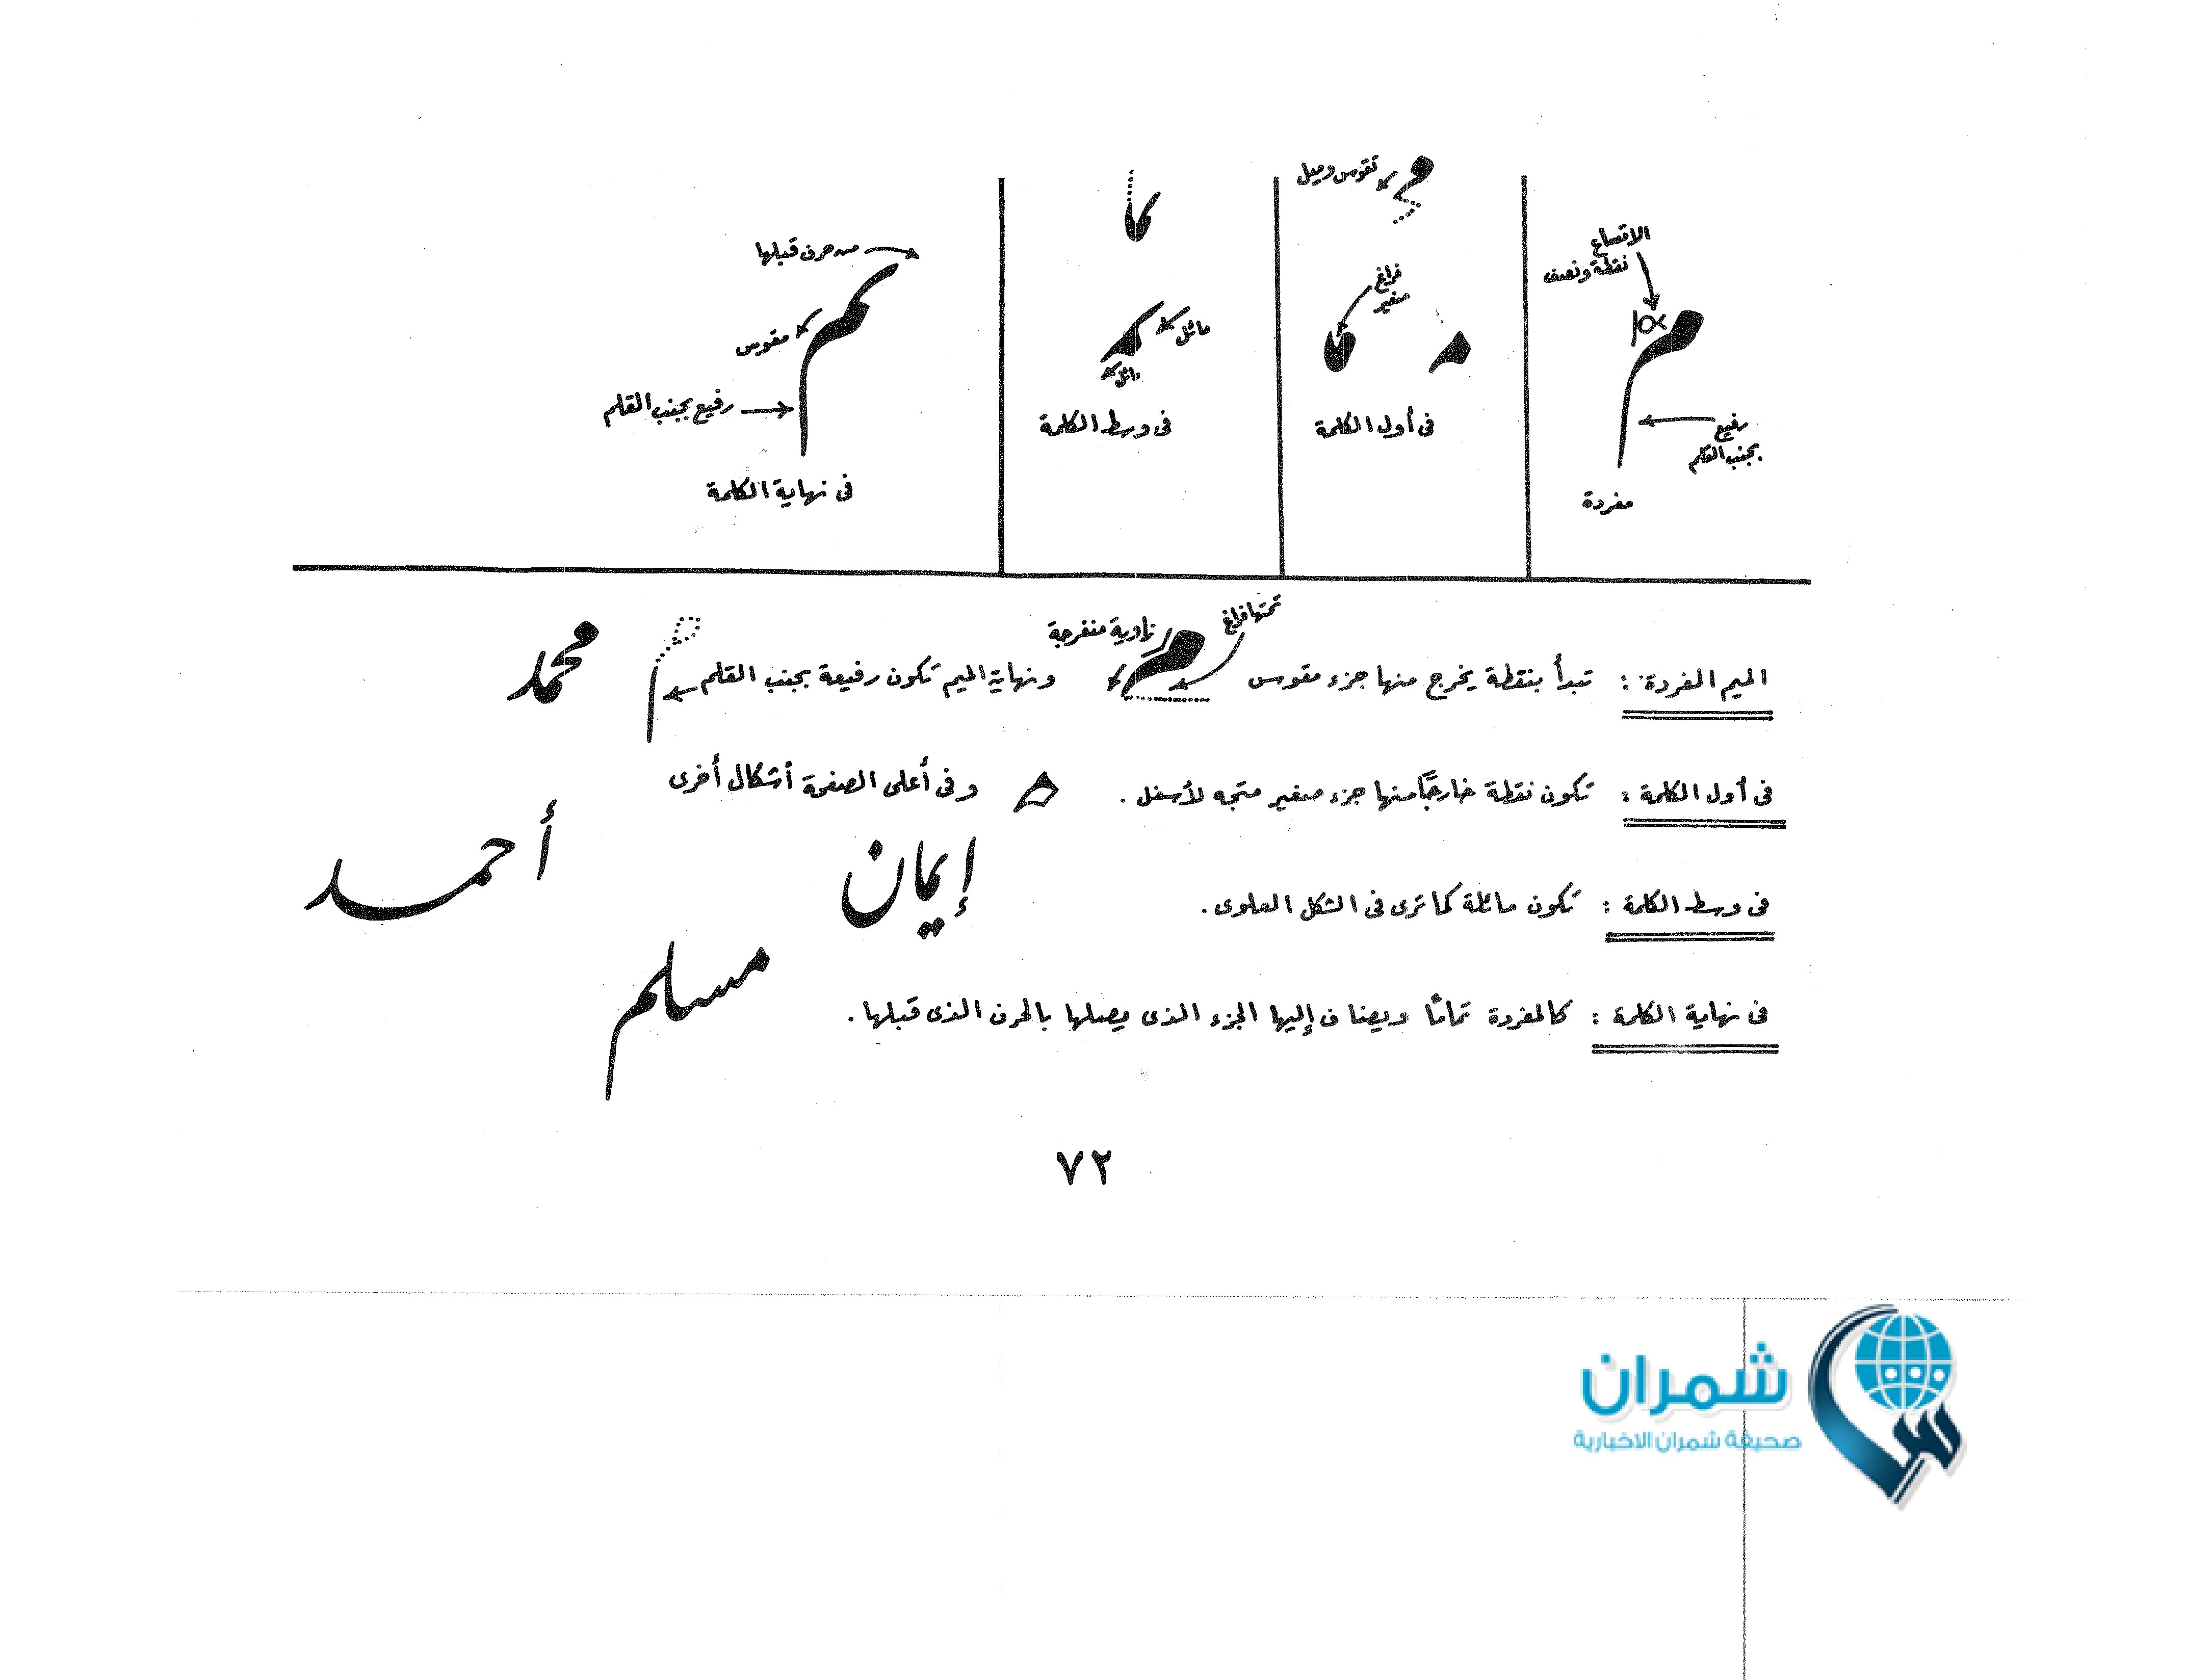 تقوس وميل
الاتساع
نقطة ونصف
م
رفيع
بجنب القلم
مفردة
فراغ
صغير
فى أول الكلمة
مائل
مائل
فى وسط الكلمة
من حرف قبلها
مقوس
رفيع بجنب القلم
فى نهاية الكلمة
تحتها فراغ
زاوية منفرجة
الميم المفردة : تبدأ بنقطة يخرج منها جزء مقوس م ونهاية الميم تكون رفيعة بجنب القلم محمد
فى أول الكلمة : تكون نقطة خارجًا منها جزء صغير متجه لأسفل . وفى أعلى الصفحة أشكال أخرى
أحمد
إيمان
فى وسط الكلمة : تكون مائلة كما ترى فى الشكل العلوى .
مسلم
فى نهاية الكلمة : كالمفردة تمامًا ويضاف إليها الجزء الذى يصلها بالحرف الذى قبلها .
٧٢
شمران
صحيفة شمران الاخبارية